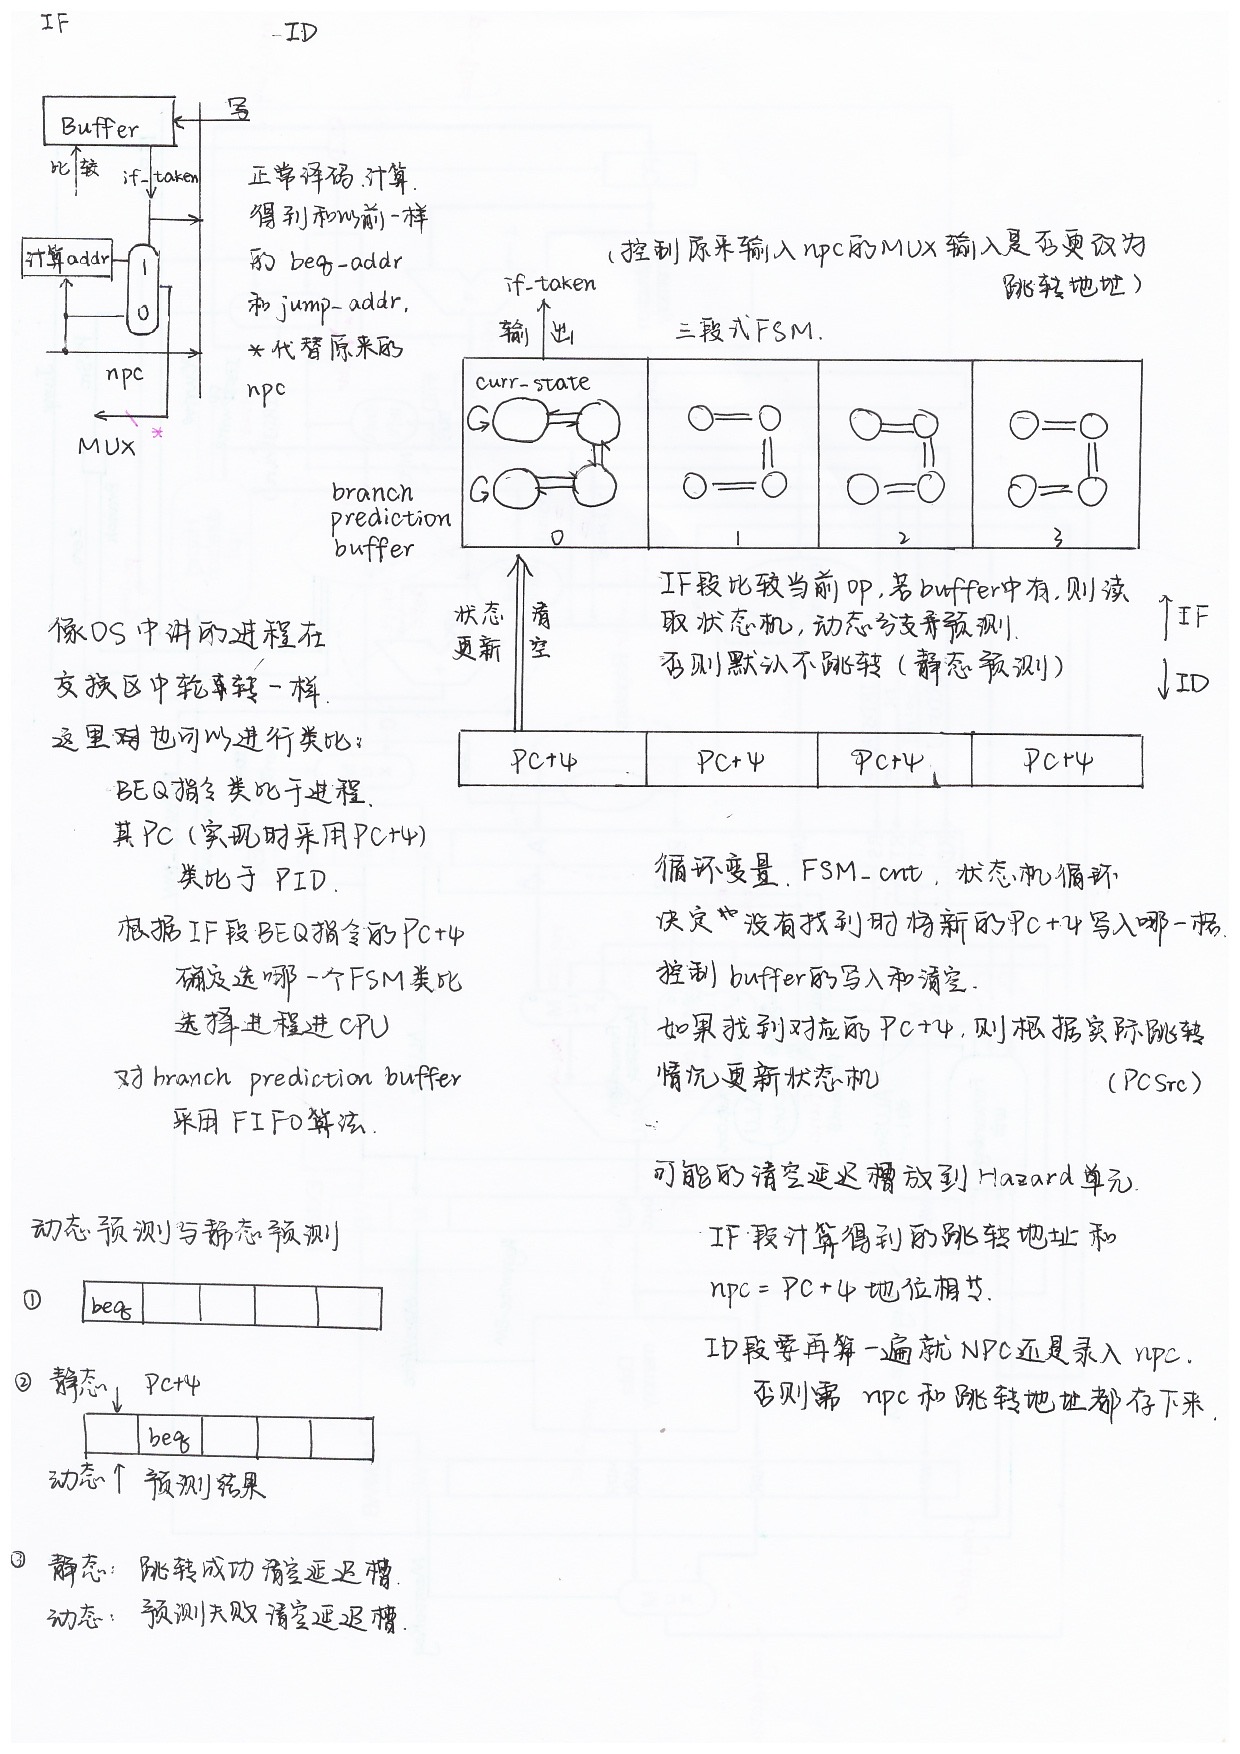 IF
ID
Buffer
写
比较
if_taken
计算addr
1
0
npc
MUX
*
正常译码、计算.
得到和以前一样
的 beq_addr
和 jump_addr,
*代替原来的
npc
(控制原来输入npc的MUX输入是否更改为
跳转地址)
if_taken
输出
三段式FSM.
curr_state
0
1
2
3
branch
prediction
buffer
状态更新
清空
IF段比较当前op,若buffer中有,则读
取状态机,动态分支预测.
否则默认不跳转(静态预测)
IF
ID
PC+4
PC+4
PC+4
PC+4
像OS中讲的进程在
交换区中轮转一样.
这里也可以进行类比:
BEQ指令类比于进程.
其PC(实现时采用PC+4)
类比于 PID.
根据IF段BEQ指令的PC+4
确定选哪一个FSM类比
选择进程进CPU
对branch prediction buffer
采用FIFO算法.
循环变量. FSM_cnt, 状态机循环
决定 没有找到时将新的PC+4写入哪一格.
控制buffer的写入和清空.
如果找到对应的PC+4,则根据实际跳转
情况更新状态机 (PCSrc)
可能的清空延迟槽放到Hazard单元.
IF段计算得到的跳转地址和
npc = PC+4 地位相等.
ID段要再算一遍就NPC还是录入npc.
否则需 npc和跳转地址都存下来.
动态预测与静态预测
① beq
② 静态 PC+4
beq
动态 预测结果
③ 静态: 跳转成功清空延迟槽.
动态: 预测失败清空延迟槽.